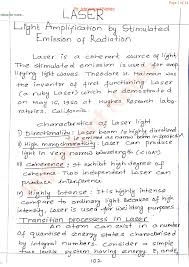 Page 1 of 14
LASER
Light Amplification by Stimulated
Emission of Radiation
Laser is a coherent source of light.
The stimulated emission is used for
light waves. Theodore H. Maiman was
the inventor of first functioning Laser
(a ruby Laser) which he demonstrated on
May 16, 1960 at Hughes Research labo-
ratories, California.
Characteristics of Laser light
i) Directionality: Laser beam is highly directional
ii) High monochromaticity: Laser can produce
light in very narrow wavelength
iii) Coherence: It exhibit high degree of
coherence. Two independent Laser can
produce interference.
iv) Highly Intense: It is highly intense
compared to ordinary light because of high
intensity, laser is used for welding purposes.
Transition processes in Laser
An atom can exist in a number
of quantised energy states characterised
by integral numbers. Consider a simple
two levels system having energy E, and
102